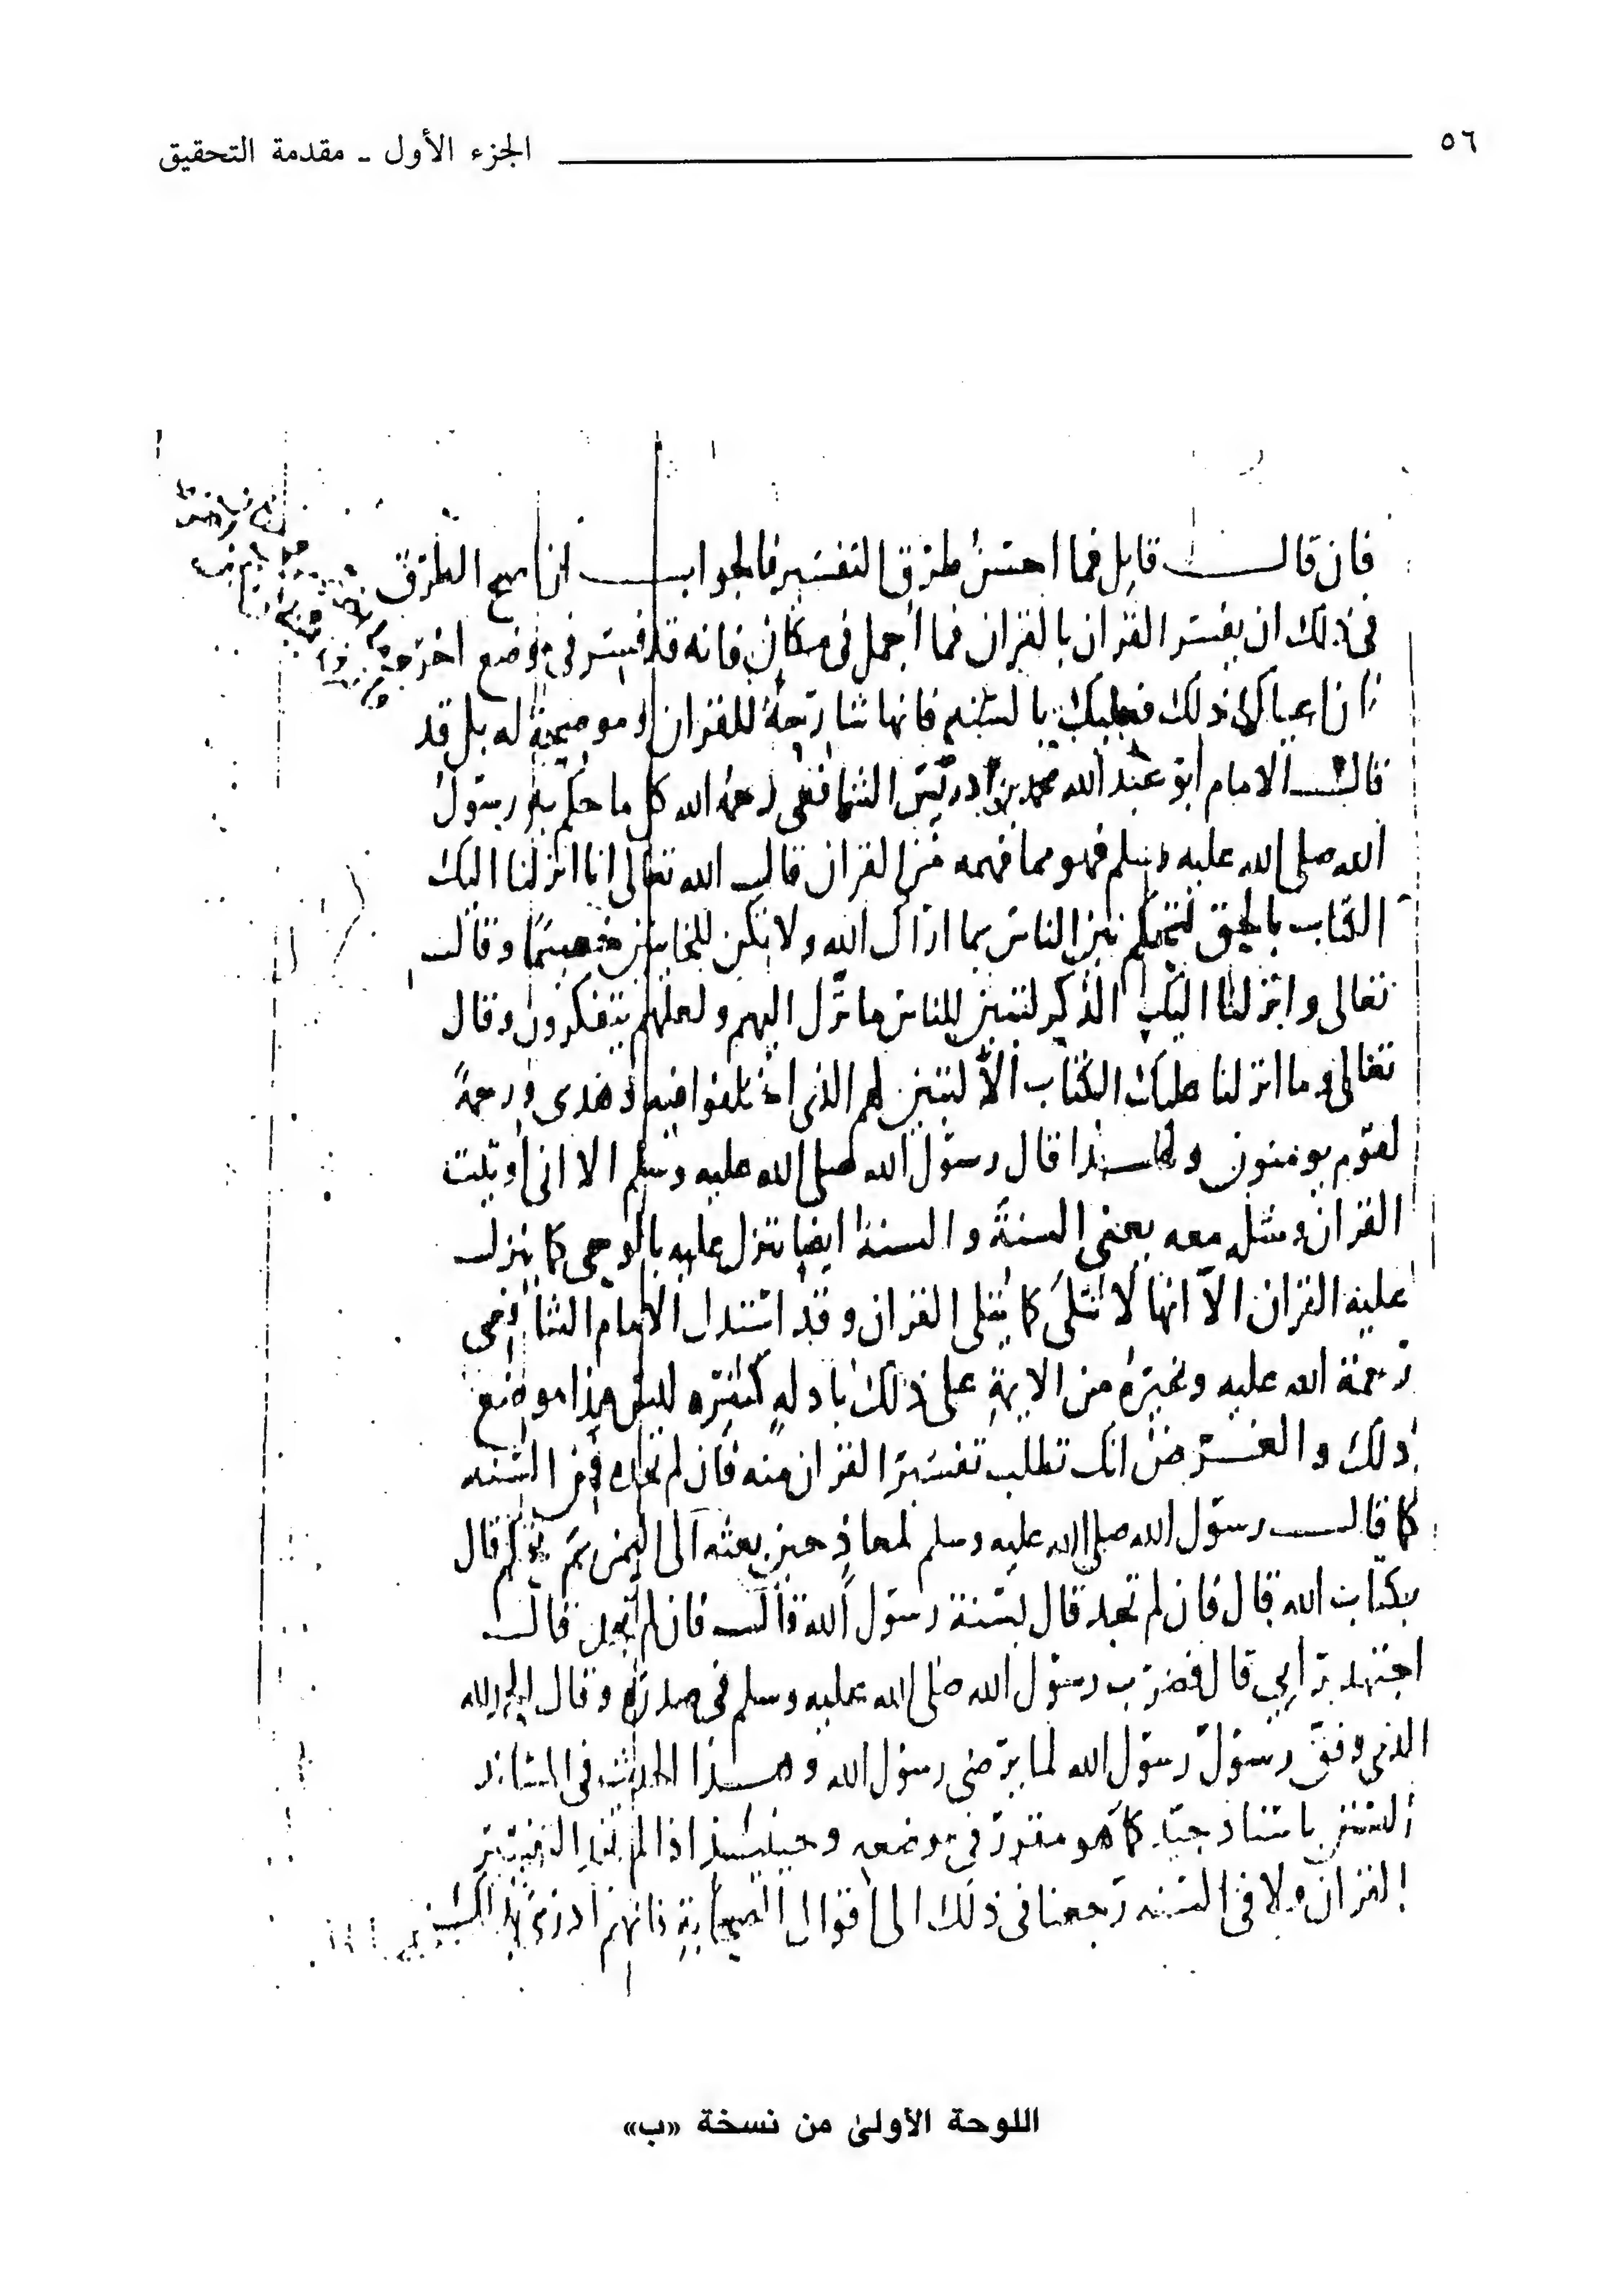 ٥٦ الجزء الأول ـ مقدمة التحقيق
فان قال قايل فما احسن طرق التفسير فالجواب ان اصح الطرق
في ذلك ان يفسر القران بالقران فما اجمل في مكان فانه قد فسر في موضع اخر
فان اعياك ذلك فعليك بالسنه فانها شارحة للقران وموضحة له بل قد
قال الامام ابو عبد الله محمد بن ادريس الشافعي رحمه الله كل ما حكم به رسول
الله صلى الله عليه وسلم فهو مما فهمه من القران قال الله تعالى انا انزلنا اليك
الكتاب بالحق لتحكم بين الناس بما اراك الله ولا تكن للخاينين خصيمًا وقال
تعالى وانزلنا اليك الذكر لتبين للناس ما نزل اليهم ولعلهم يتفكرون وقال
تعالى وما انزلنا عليك الكتاب الا لتبين لهم الذي اختلفوا فيه وهدى ورحمةً
لقوم يومنون ولهذا قال رسول الله صلى الله عليه وسلم الا اني اوتيت
القران ومثله معه يعني السنة والسنة ايضا تنزل عليه بالوحي كما ينزل
عليه القران الا انها لا تتلى كما يتلى القران وقد استدل الامام الشافعي
رحمة الله عليه وغيره من الايمة على ذلك بادلة كثيره ليس هذا موضع
ذلك والغرض انك تطلب تفسير القران منه فان لم تجده فمن السنه
كما قال رسول الله صلى الله عليه وسلم لمعاذ حين بعثه الى اليمن بم تحكم قال
بكتاب الله قال فان لم تجد قال بسنة رسول الله قال فان لم تجد قال
اجتهد برايي قال فضرب رسول الله صلى الله عليه وسلم في صدره وقال الحمد لله
الذي وفق رسول رسول الله لما يرضي رسول الله وهذا الحديث في المساند
السنن باسناد جيد كما هو مقرر في موضعه وحينئذ اذا لم نجد التفسير
القران ولا في السنه رجعنا في ذلك الى اقوال الصحابة فانهم ادرى بذلك
اللوحة الأولىٰ من نسخة «ب»